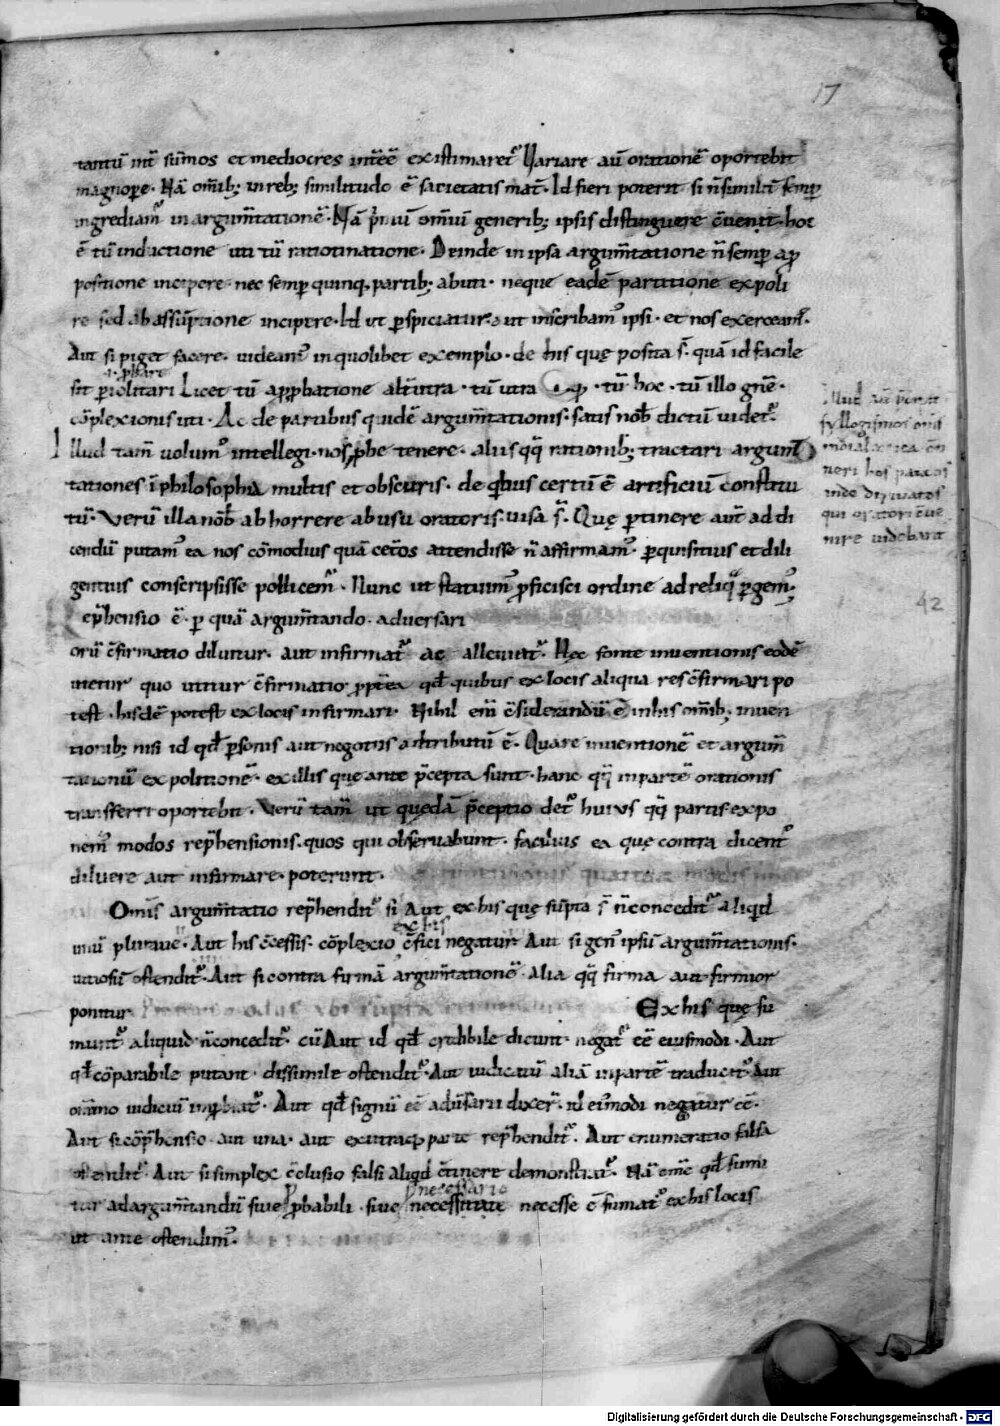 17
tantū int̄ sūmos et mediocres int̄eē existimaretᷣ Uariare aū orationē oportebit
magnopere· Nā om̄ib; in reb; similitudo ē sacietatis mat̄· Id fieri poterit si n̄ similit̄ semp̄
ingrediamᷣ in argum̄tationē· Nā p̄mū om̄iū generib; ipsis distinguere c̄uenit· hoc
ē tū inductione uti tū ratiotinatione· Deinde in ipsa argum̄tatione n̄ semp̄ a ꝓ
positione incipere· nec semp̄ quinq; partib; abuti· neque eadē partitione expoli
re sed ab assūptione incipere· Id ut ꝑspiciatur· aut inscribamᷣ ipsi· et nos exerceamᷣ·
Aut si piget facere· uideamᷣ in quolibet exemplo· de his quę posita s̄· quā id facile
sit Licet tū apꝓbatione tū utra · tū hoc· tū illo gn̄e·
cōplexionis uti· Ac de partibus quidē argum̄tationis· satis nob̄ dictū uidetᷣ·
Illud tam̄ uolumᷣ intellegi· nos ꝓbe tenere· aliis qq̄ rationib; tractari argum̄
tationes ī philosophia multis et obscuris· de qͥbus certū ē artificiū constitu
tū· Verū illa nob̄ abhorrere ab usu oratoris· uisa s̄· Quę ꝑtinere aut̄ ad di
cendū putamᷣ ea nos cōmodius quā cet̄os attendisse n̄ affirmamᷣ· ꝑquisitius et dili
gentius conscripsisse pollicemᷣ· Nunc ut statuimᷣ ꝓficisci ordine ad reliq̄ ꝑgemᷣ;
Rep̄hensio ē· ꝑ quā argum̄tando· aduersari
orū c̄firmatio diluitur· aut infirmatᷣ ac alleuiatᷣ· Hęc fonte inuentionis eodē
utetur quo utitur c̄firmatio· ꝓpt̄ea qd̄ quibus ex locis aliqua res c̄firmari po
test· hisdē potest ex locis infirmari· Nihil eni̅ c̄siderandū ē in his om̄ib; inuen
tionib; nisi id qd̄ ꝑsonis aut negotiis adtributū ē· Quare inuentionē et argum̄
tationū expolitionē· ex illis que ante p̄cepta sunt· hanc qq̄ in partē orationis
transferri oportebit· Verū tam̄ ut quędā p̄ceptio detᷣ huius qq̄ partis· expo
nemᷣ modos rep̄hensionis· quos qui obseruabunt· facilius ea que contra dicentᷣ
diluere aut infirmare· poterunt·
Omīs argum̄tatio rep̄henditᷣ si Aut ex his quę sūpta s̄ n̄ conceditᷣ aliqͥd
ex his
unū pluraue· Aut his c̄cessis· cōplexio c̄fici negatur· Aut si gen̄ ipsū argum̄tationis·
uitiosū ostenditᷣ· Aut si contra firmā argum̄tationē· alia qq̄ firma aut firmior
ponitur Ex his quę su
muntᷣ aliquid n̄ conceditᷣ· cū Aut id qd̄ credibile dicunt· negatᷣ eē eiusmodi· Aut
qd̄ cōparabile putant· dissimile ostenditᷣ· Aut iudicatū aliā in partē traducitᷣ· Aut
omnino iudiciū inꝓbatᷣ· Aut qd̄ signū eē adūsarii dixer̄· id eiᷣmodi negatur eē·
Aut si cōp̄hensio· aut una· aut ex utraq; parte rep̄henditᷣ· Aut enumeratio falsa
ostenditᷣ· Aut si simplex c̄clusio falsi aliqͥd c̄tinere demonstratᷣ· Nā om̄e qd̄ sumi
necessario
tur ad argum̄tandū siue ꝓbabili· siue necessitate necesse ē sumatᷣ ex his locis
ut ante ostendimᷣ·
Illud
syllogismos
in dialectica
neri hos paucos
inde diriuatos
qui oratori c̄ue
nire uidebant
42
Digitalisierung gefördert durch die Deutsche Forschungsgemeinschaft - DFG